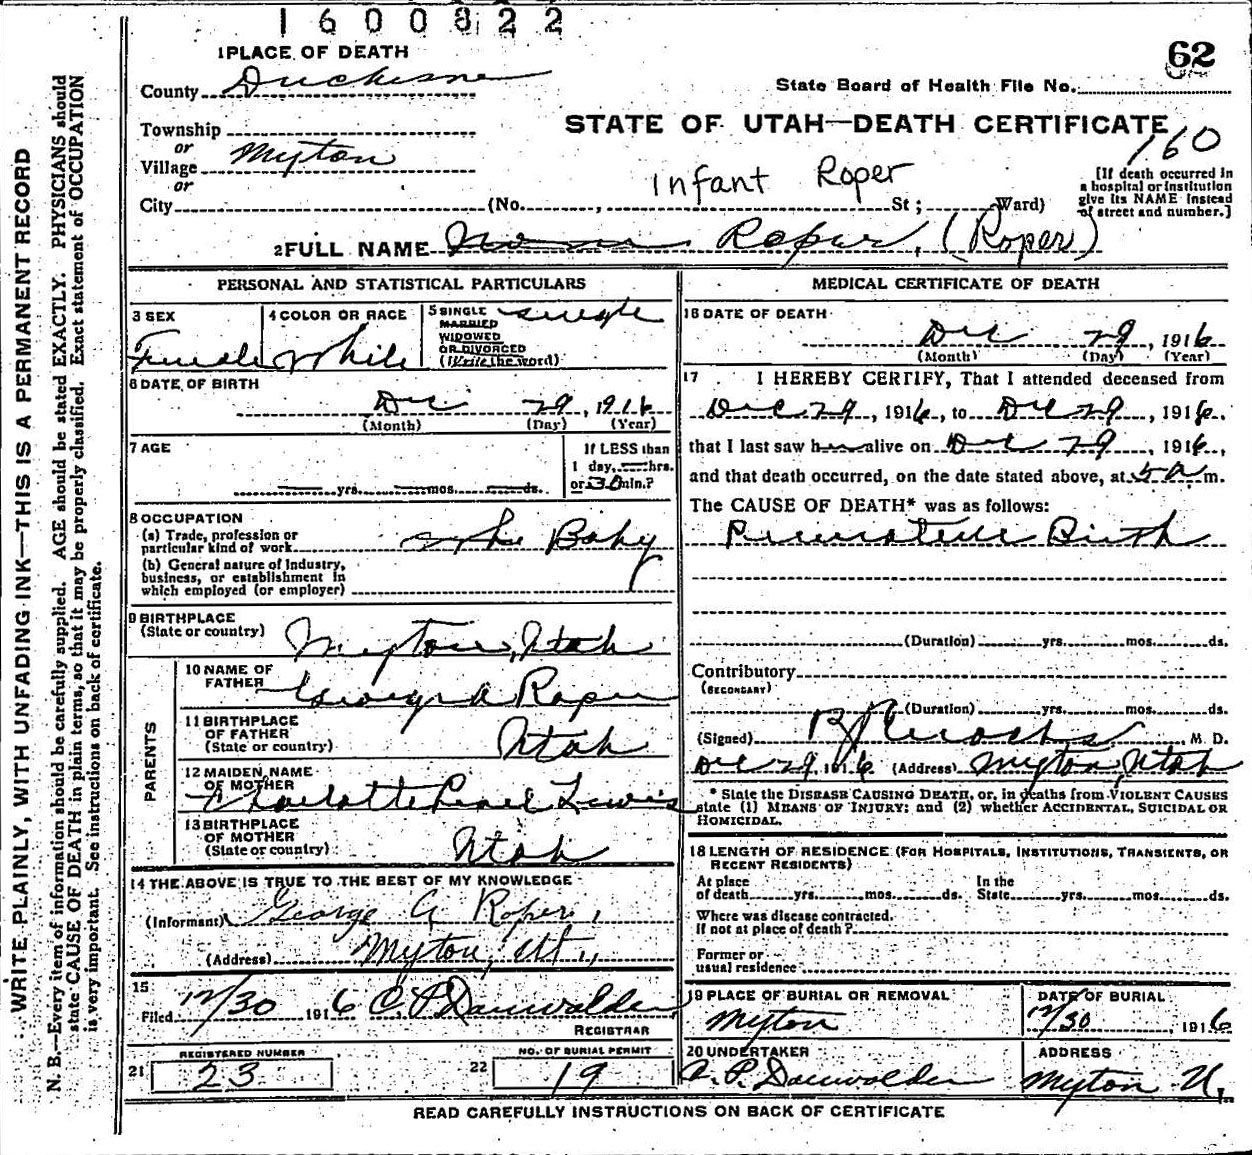 1600822
1 PLACE OF DEATH
62
County Duchesne
State Board of Health File No.
Township
STATE OF UTAH—DEATH CERTIFICATE
or
160
Village Myton
Infant Roper
[If death occurred in
a hospital or institution
give its NAME instead
of street and number.]
or
City (No. , St ; Ward)
2 FULL NAME Roper, (Roper)
PERSONAL AND STATISTICAL PARTICULARS
3 SEX
Female
4 COLOR OR RACE
White
5 SINGLE
MARRIED
WIDOWED
OR DIVORCED
(Write the word)
single
6 DATE OF BIRTH
Dec 29, 1916
(Month) (Day) (Year)
7 AGE
yrs. mos. ds.
If LESS than
1 day, hrs.
or 30 min.?
8 OCCUPATION
(a) Trade, profession or
particular kind of work Baby
(b) General nature of industry,
business, or establishment in
which employed (or employer)
9 BIRTHPLACE
(State or country) Myton, Utah
PARENTS
10 NAME OF
FATHER
George A Roper
11 BIRTHPLACE
OF FATHER
(State or country) Utah
12 MAIDEN NAME
OF MOTHER
Charlotte Pearl Lewis
13 BIRTHPLACE
OF MOTHER
(State or country) Utah
14 THE ABOVE IS TRUE TO THE BEST OF MY KNOWLEDGE
(Informant) George A Roper,
(Address) Myton, Ut.,
15
Filed 12/30 1916 C. P. Dauwalder
REGISTRAR
REGISTERED NUMBER
21 23
NO. OF BURIAL PERMIT
22 19
MEDICAL CERTIFICATE OF DEATH
16 DATE OF DEATH
Dec 29, 1916
(Month) (Day) (Year)
17 I HEREBY CERTIFY, That I attended deceased from
Dec 29, 1916, to Dec 29, 1916,
that I last saw her alive on Dec 29, 1916,
and that death occurred, on the date stated above, at 5 a. m.
The CAUSE OF DEATH* was as follows:
Premature Birth
(Duration) yrs. mos. ds.
Contributory
(SECONDARY)
(Duration) yrs. mos. ds.
(Signed) M. D.
Dec 29, 1916 (Address) Myton, Utah
* State the DISEASE CAUSING DEATH, or, in deaths from VIOLENT CAUSES
state (1) MEANS OF INJURY; and (2) whether ACCIDENTAL, SUICIDAL OR
HOMICIDAL.
18 LENGTH OF RESIDENCE (FOR HOSPITALS, INSTITUTIONS, TRANSIENTS, OR
RECENT RESIDENTS)
At place
of death yrs. mos. ds.
In the
State yrs. mos. ds.
Where was disease contracted.
If not at place of death?
Former or
usual residence
19 PLACE OF BURIAL OR REMOVAL
Myton
DATE OF BURIAL
12/30, 1916
20 UNDERTAKER
C. P. Dauwalder
ADDRESS
Myton U,
READ CAREFULLY INSTRUCTIONS ON BACK OF CERTIFICATE
WRITE PLAINLY, WITH UNFADING INK—THIS IS A PERMANENT RECORD
N. B.—Every item of information should be carefully supplied. AGE should be stated EXACTLY. PHYSICIANS should
state CAUSE OF DEATH in plain terms, so that it may be properly classified. Exact statement of OCCUPATION
is very important. See instructions on back of certificate.